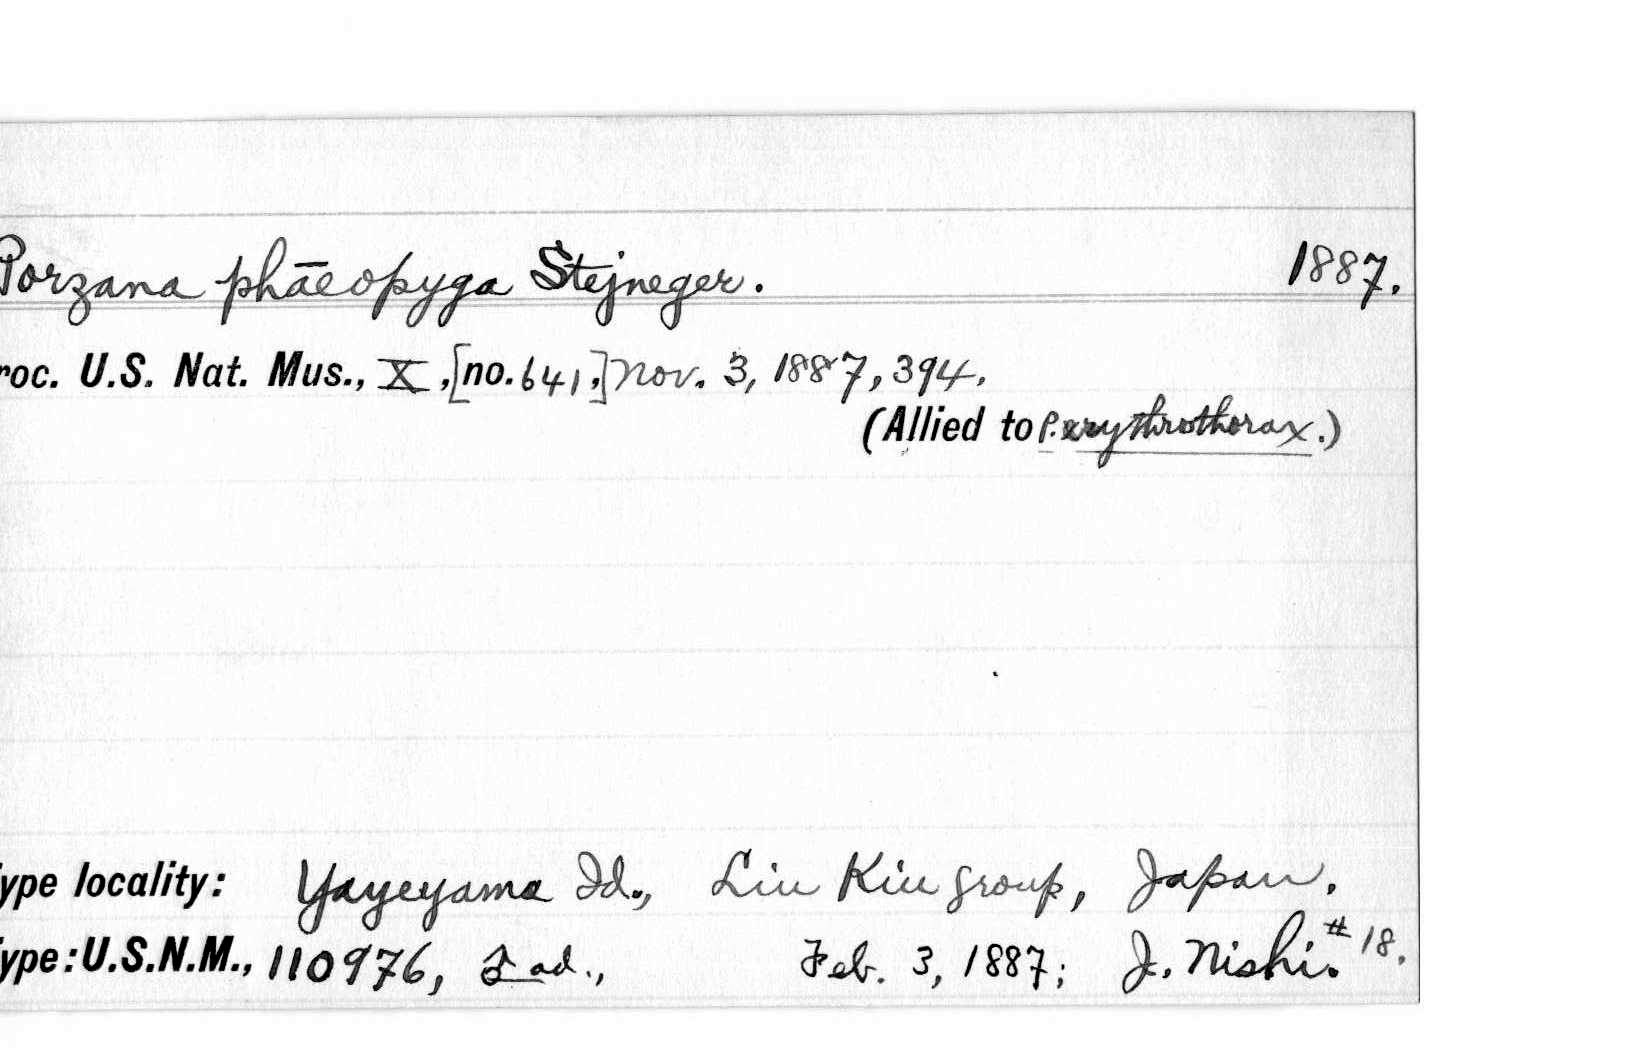 Porzana phāeopyga Stejneger. 1887.
roc. U.S. Nat. Mus., X, [no. 641,] Nov. 3, 1887, 394.
(Allied to P. erythrothorax.)
ype locality: Yayeyama Id., Liu Kiu group, Japan.
ype: U.S.N.M., 110976, ad., Feb. 3, 1887; J. Nishi. #18.